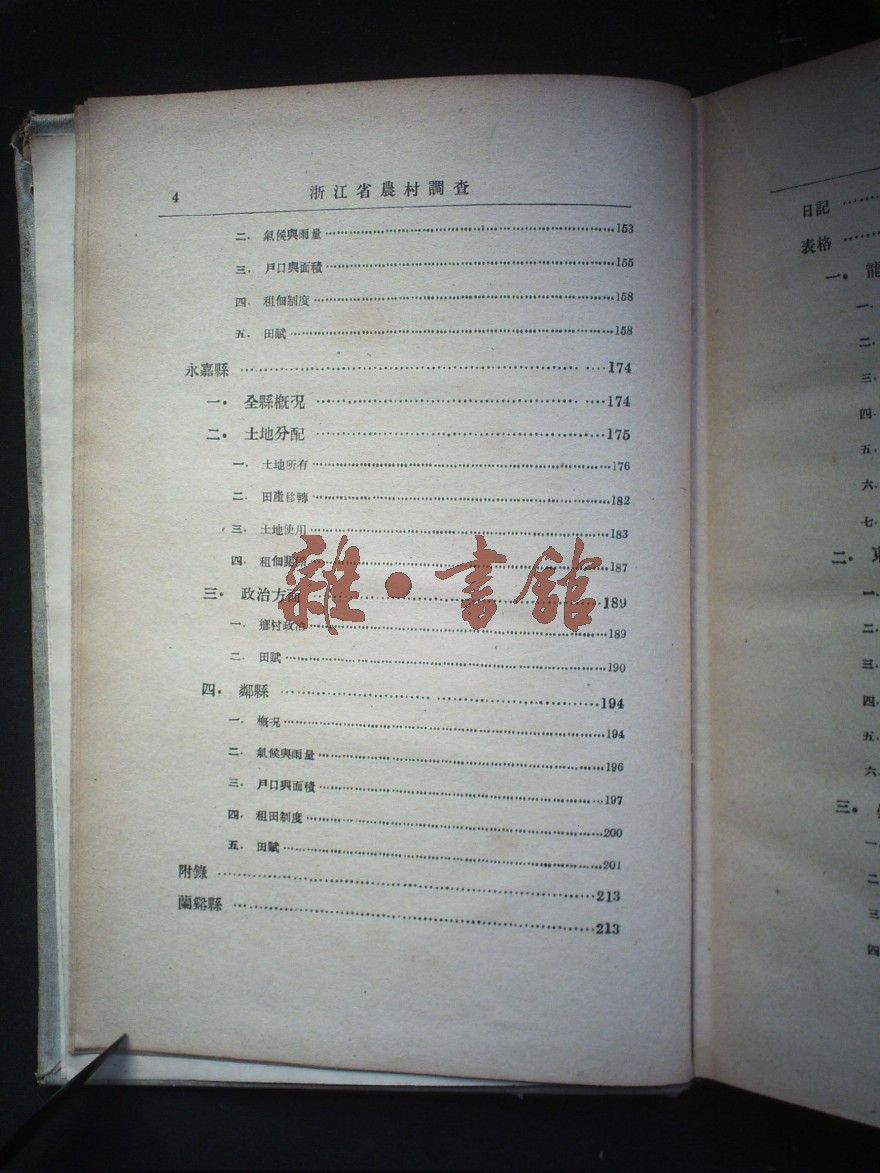 4 浙江省農村調查
二. 氣候與雨量 153
三. 戶口與面積 155
四. 租佃制度 158
五. 田賦 158
永嘉縣 174
一. 全縣概況 174
二. 土地分配 175
一. 土地所有 176
二. 田產移轉 182
三. 土地使用 183
四. 租佃關係 187
三. 政治方面 189
一. 鄉村政治 189
二. 田賦 190
四. 鄰縣 194
一. 概況 194
二. 氣候與雨量 196
三. 戶口與面積 197
四. 租田制度 200
五. 田賦 201
附錄 213
蘭谿縣 213
雜·書館
日記
表格
一.
一.
二.
三.
四.
五.
六.
七.
二.
一.
二.
三.
四.
五.
六.
三.
一.
二.
三.
四